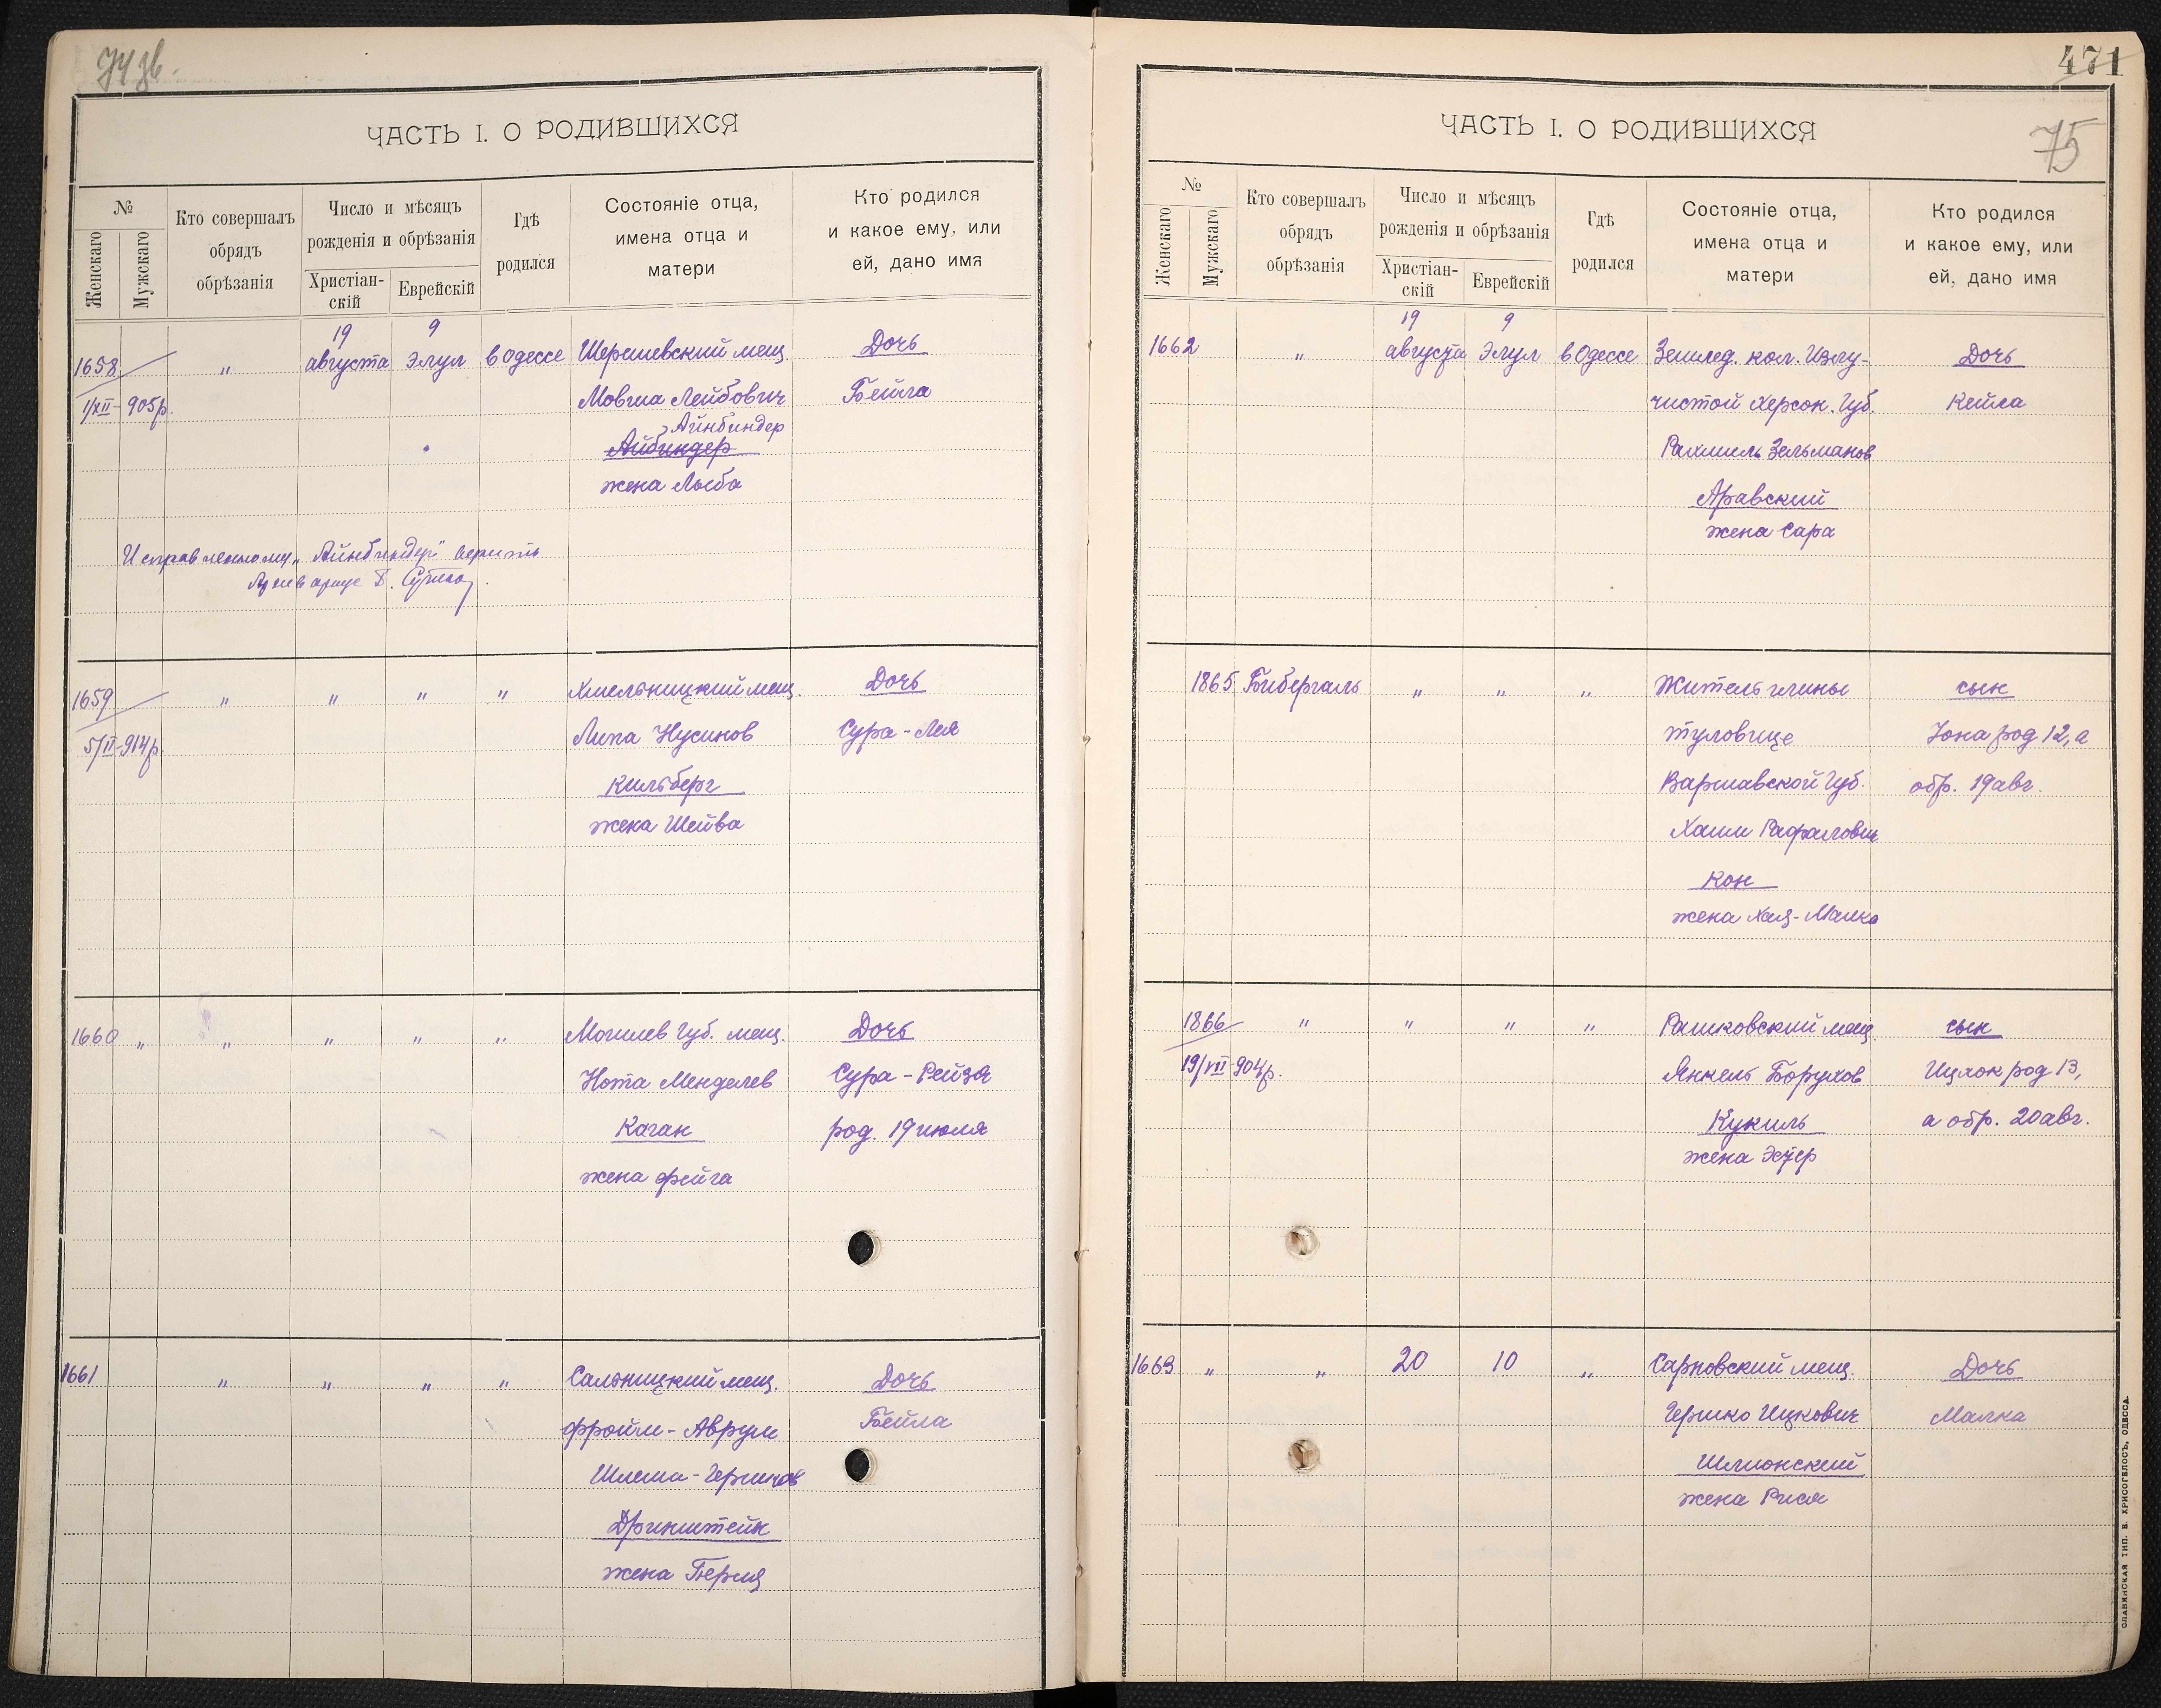 ЧАСТЬ I. О РОДИВШИХСЯ
№
Женскаго
Мужскаго
Кто совершалъ
обрядъ
обрѣзанія
Число и мѣсяцъ
рожденія и обрѣзанія
Христіан-
скій
Еврейскій
Гдѣ
родился
Состояніе отца,
имена отца и
матери
Кто родился
и какое ему, или
ей, дано имя
19 9
1658 " августа Элул в Одессе Шерешевский мещ. Дочь
1/XII-905р. Мовша Лейбович Бейла
Айнбиндер
Айбиндер
жена Люба
Исправленному „Айнбиндер" верить
1659 " " " " Хмельницкий мещ. Дочь
5/II-914р. Липа Нусинов Сура-Лея
Кильберг
жена Шейва
1660 " " " " " Могилев Губ. мещ. Дочь
Нота Менделев Сура-Рейзя
Каган род. 19 июля
жена Фейга
1661 " " " " Сальницкий мещ. Дочь
Фроим-Аврум Бейла
Шлема-Гершков
Дринштейн
жена Перля
471
ЧАСТЬ I. О РОДИВШИХСЯ
75
№
Женскаго
Мужскаго
Кто совершалъ
обрядъ
обрѣзанія
Число и мѣсяцъ
рожденія и обрѣзанія
Христіан-
скій
Еврейскій
Гдѣ
родился
Состояніе отца,
имена отца и
матери
Кто родился
и какое ему, или
ей, дано имя
19 9
1662 " августа Элул в Одессе Землед. кол. Излу- Дочь
чистой Херсон. Губ. Кейла
Рахмиль Зельманов
Аравский
жена Сара
1865 Бибергаль " " " Житель глины сын
туловище Iона род 12, а
Варшавской Губ. обр. 19 авг.
Хаим Рафалович
Кон
жена Хая-Малка
1866 " " " " Рашковский мещ. сын
19/VII-904р. Янкель Борухов Ицхок род 13,
Кукиль а обр. 20 авг.
жена Эстер
1663 " " 20 10 " Сарновский мещ. Дочь
Гершко Ицкович Малка
Шлионский
жена Рися
СЛАВЯНСКАЯ ТИП. Н. ХРИСОГЕЛОСЪ, ОДЕССА.